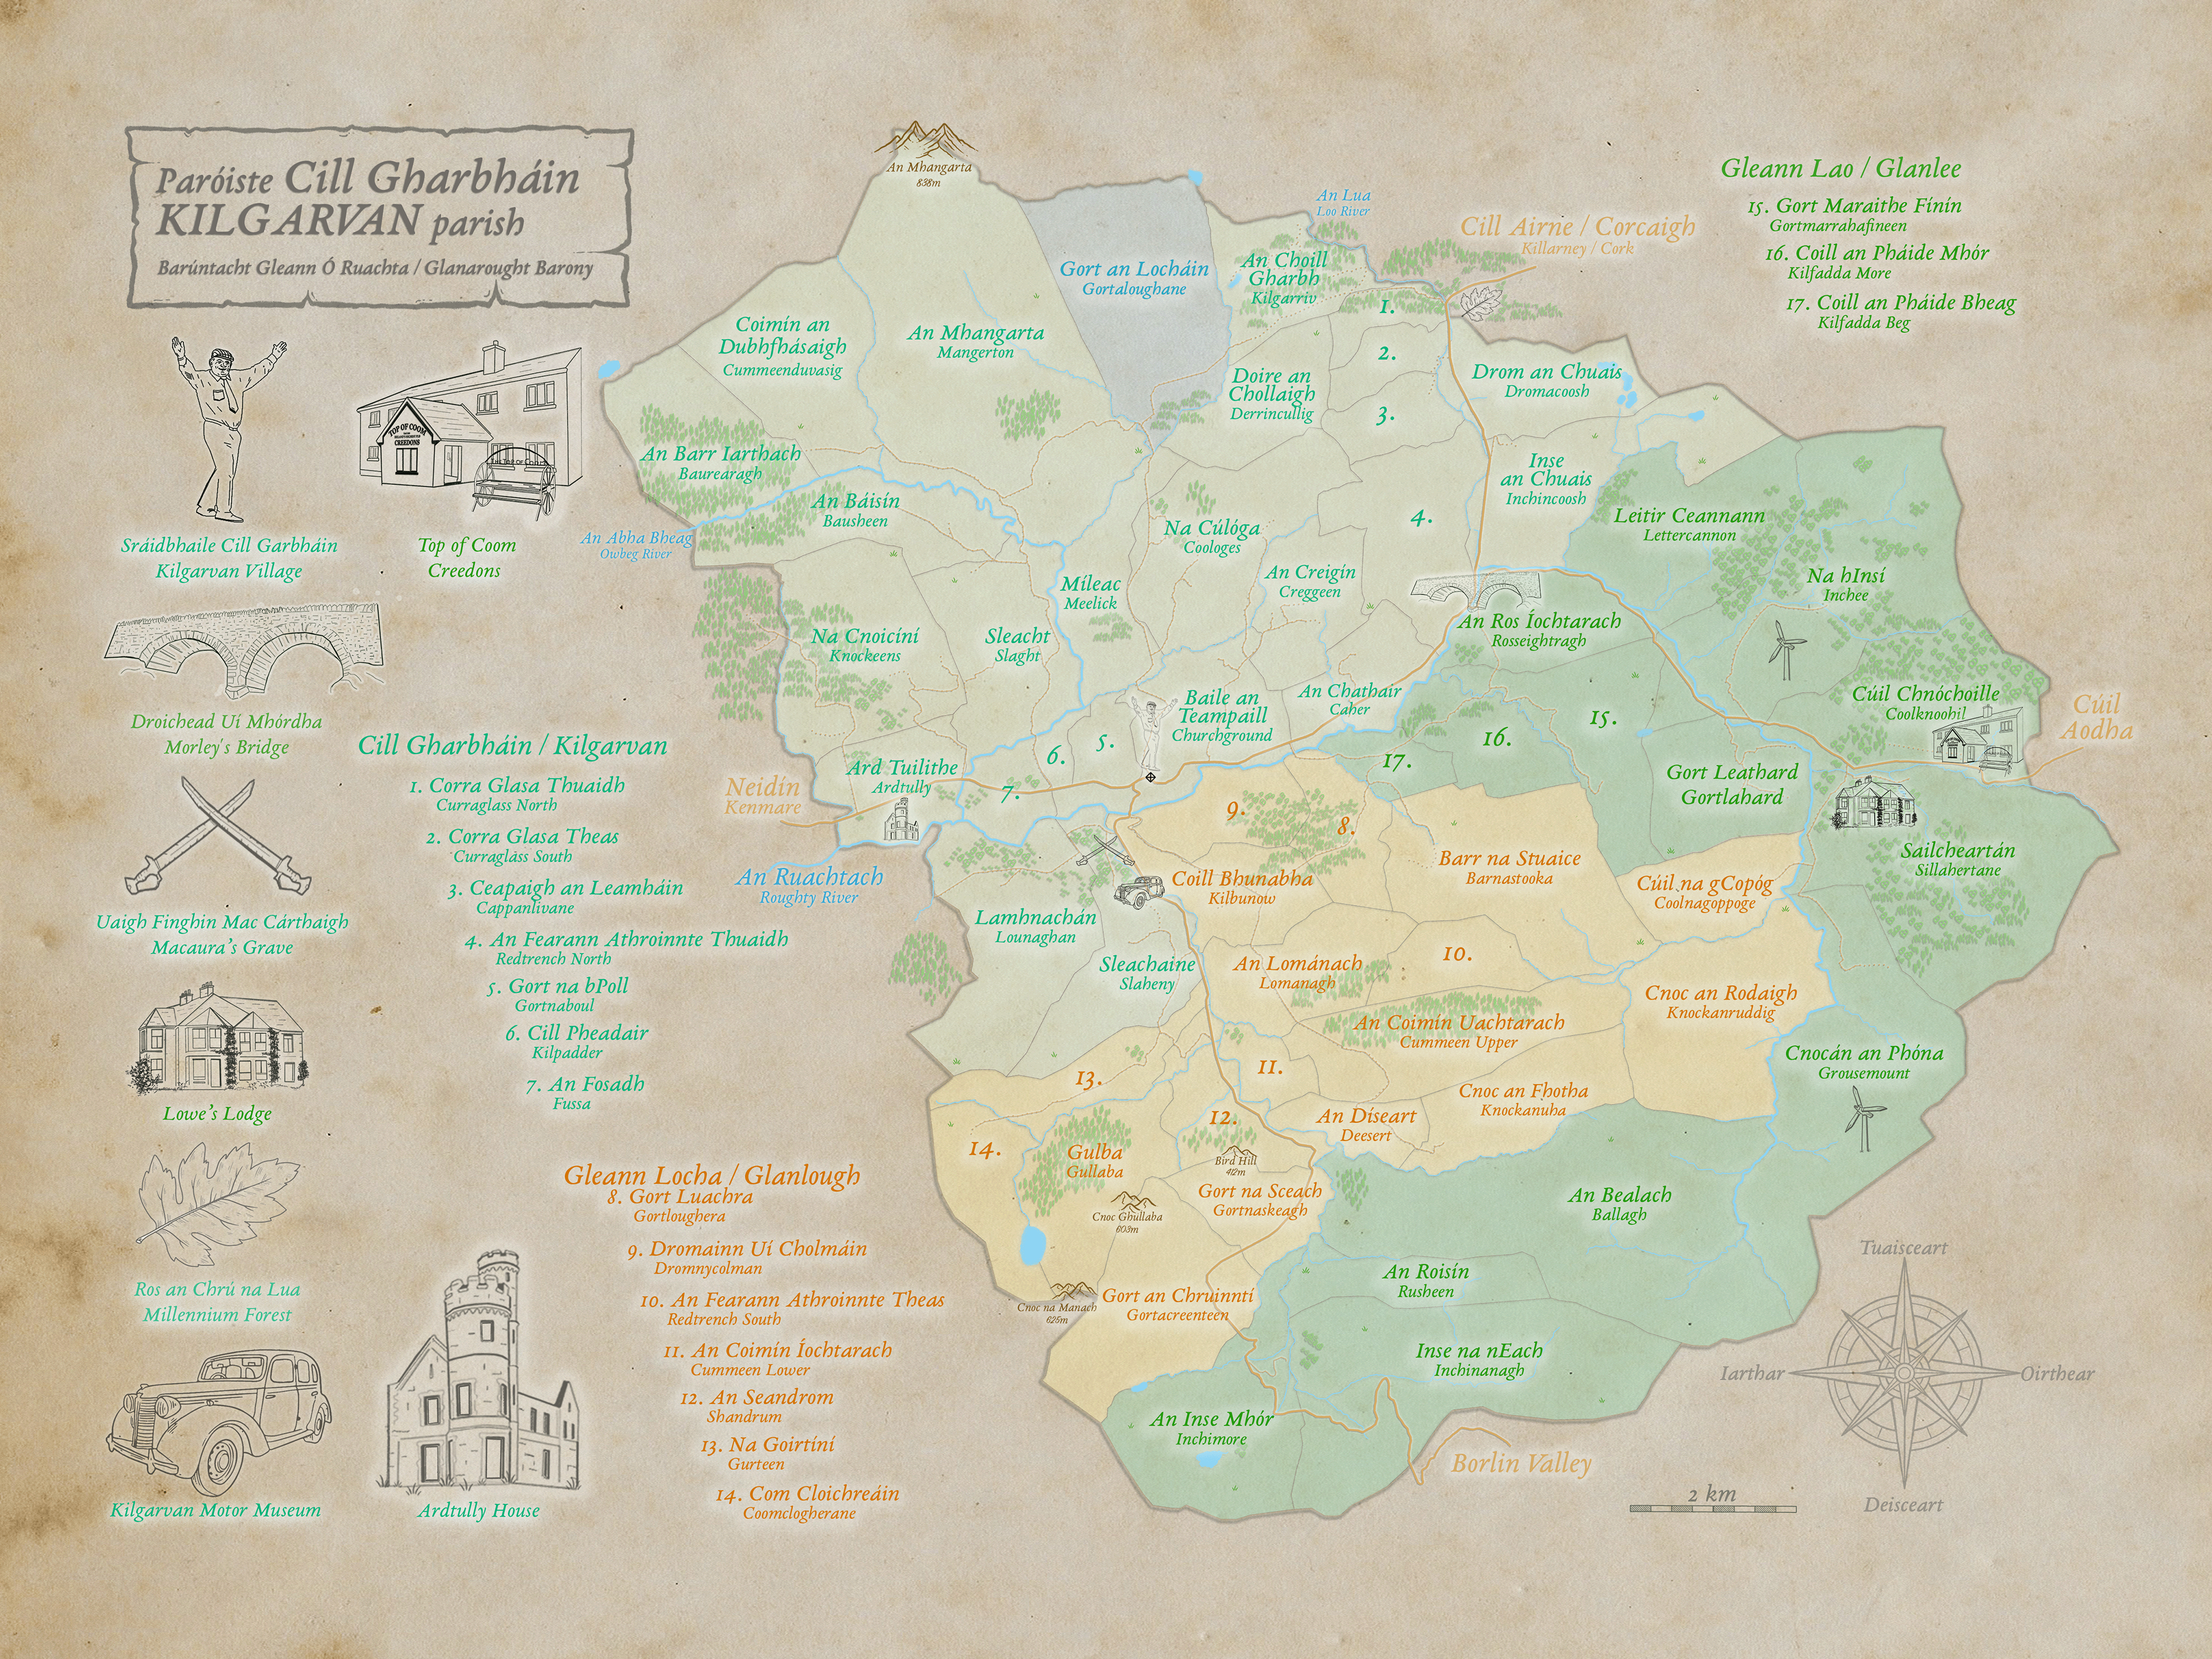 Paróiste Cill Gharbháin
KILGARVAN parish
Barúntacht Gleann Ó Ruachta / Glanarought Barony
TOP OF COOM
CREEDONS
Sráidbhaile Cill Garbháin
Kilgarvan Village
Top of Coom
Creedons
Droichead Uí Mhórdha
Morley's Bridge
Uaigh Finghin Mac Cárthaigh
Macaura's Grave
Lowe's Lodge
Ros an Chrú na Lua
Millennium Forest
Kilgarvan Motor Museum
Ardtully House
Cill Gharbháin / Kilgarvan
1. Corra Glasa Thuaidh
Curraglass North
2. Corra Glasa Theas
Curraglass South
3. Ceapaigh an Leamháin
Cappanlivane
4. An Fearann Athroinnte Thuaidh
Redtrench North
5. Gort na bPoll
Gortnaboul
6. Cill Pheadair
Kilpadder
7. An Fosadh
Fussa
Gleann Locha / Glanlough
8. Gort Luachra
Gortloughera
9. Dromainn Uí Cholmáin
Dromnycolman
10. An Fearann Athroinnte Theas
Redtrench South
11. An Coimín Íochtarach
Cummeen Lower
12. An Seandrom
Shandrum
13. Na Goirtíní
Gurteen
14. Com Cloichreáin
Coomclogherane
Gleann Lao / Glanlee
15. Gort Maraithe Fínín
Gortmarrahafineen
16. Coill an Pháide Mhór
Kilfadda More
17. Coill an Pháide Bheag
Kilfadda Beg
An Mhangarta
838m
An Lua
Loo River
Cill Airne / Corcaigh
Killarney / Cork
Gort an Locháin
Gortaloughane
An Choill
Gharbh
Kilgarriv
1.
Coimín an
Dubhfhásaigh
Cummeenduvasig
An Mhangarta
Mangerton
2.
Doire an
Chollaigh
Derrincullig
3.
Drom an Chuais
Dromacoosh
An Barr Iarthach
Baurearagh
An Báisín
Bausheen
Inse
an Chuais
Inchincoosh
4.
Leitir Ceannann
Lettercannon
An Abha Bheag
Owbeg River
Na Cúlóga
Coologes
Míleac
Meelick
An Creigín
Creggeen
Na hInsí
Inchee
Na Cnoicíní
Knockeens
Sleacht
Slaght
An Ros Íochtarach
Rosseightragh
Baile an
Teampaill
Churchground
An Chathair
Caher
Cúil Chnóchoille
Coolknoohil
Cúil
Aodha
15.
16.
17.
5.
6.
7.
Ard Tuilithe
Ardtully
Neidín
Kenmare
Gort Leathard
Gortlahard
9.
8.
An Ruachtach
Roughty River
Coill Bhunabha
Kilbunow
Barr na Stuaice
Barnastooka
Cúil na gCopóg
Coolnagoppoge
Sailcheartán
Sillahertane
Lamhnachán
Lounaghan
Sleachaine
Slaheny
An Lománach
Lomanagh
10.
Cnoc an Rodaigh
Knockanruddig
An Coimín Uachtarach
Cummeen Upper
Cnocán an Phóna
Grousemount
13.
11.
12.
Cnoc an Fhotha
Knockanuha
An Díseart
Deesert
14.
Gulba
Gullaba
Bird Hill
412m
Gort na Sceach
Gortnaskeagh
Cnoc Ghullaba
603m
An Bealach
Ballagh
Cnoc na Manach
625m
Gort an Chruinntí
Gortacreenteen
An Roisín
Rusheen
Inse na nEach
Inchinanagh
An Inse Mhór
Inchimore
Borlin Valley
2 km
Tuaisceart
Iarthar
Oirthear
Deisceart